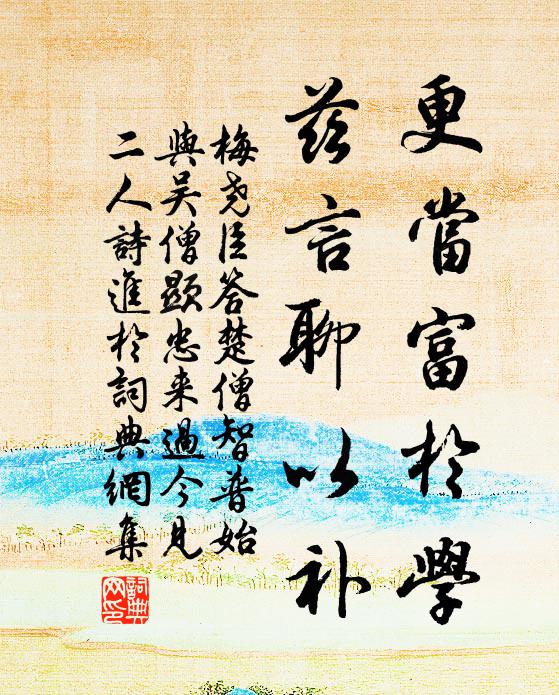 更當富於學
茲言聊以补
梅尧臣答楚僧智普始
與吴僧顯忠来過今見
二人詩進於詞典網集
詞典網印